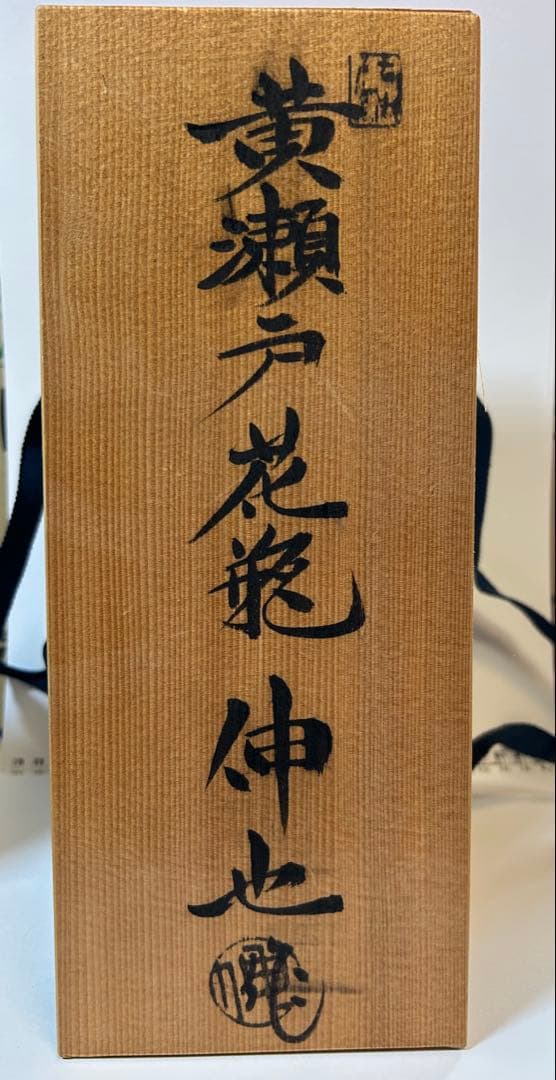 黄瀬戸花瓶 伸也